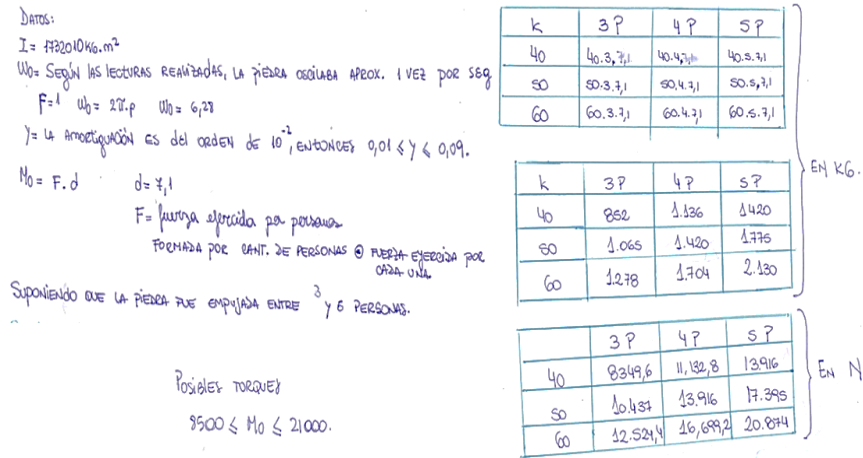 DATOS:
I = 1732010 KG.m²
W₀ = SEGÚN LAS LECTURAS REALIZADAS, LA PIEDRA OSCILABA APROX. 1 VEZ POR SEG
F=1 W₀ = 2π.p W₀ = 6,28
γ = LA AMORTIGUACIÓN ES del ORDEN DE 10⁻², ENTONCES 0,01 ≤ γ ≤ 0,09.
M₀ = F.d d = 7,1
F = fuerza ejercida por personas
FORMADA POR CANT. DE PERSONAS ⊙ FUERZA EJERCIDA POR
CADA UNA.
SUPONIENDO QUE LA PIEDRA FUE EMPUJADA ENTRE 3 y 6 PERSONAS.
POSIBLES TORQUES
8500 ≤ M₀ ≤ 21000.
K 3P 4P 5P
40 40.3.7,1 40.4.7,1 40.5.7,1
50 50.3.7,1 50.4.7,1 50.5.7,1
60 60.3.7,1 60.4.7,1 60.5.7,1
K 3P 4P 5P
40 852 1.136 1420
50 1.065 1.420 1.775
60 1.278 1.704 2.130
EN KG.
3P 4P 5P
40 8349,6 11,132,8 13.916
50 10.437 13.916 17.395
60 12.524,4 16,699,2 20.874
EN N